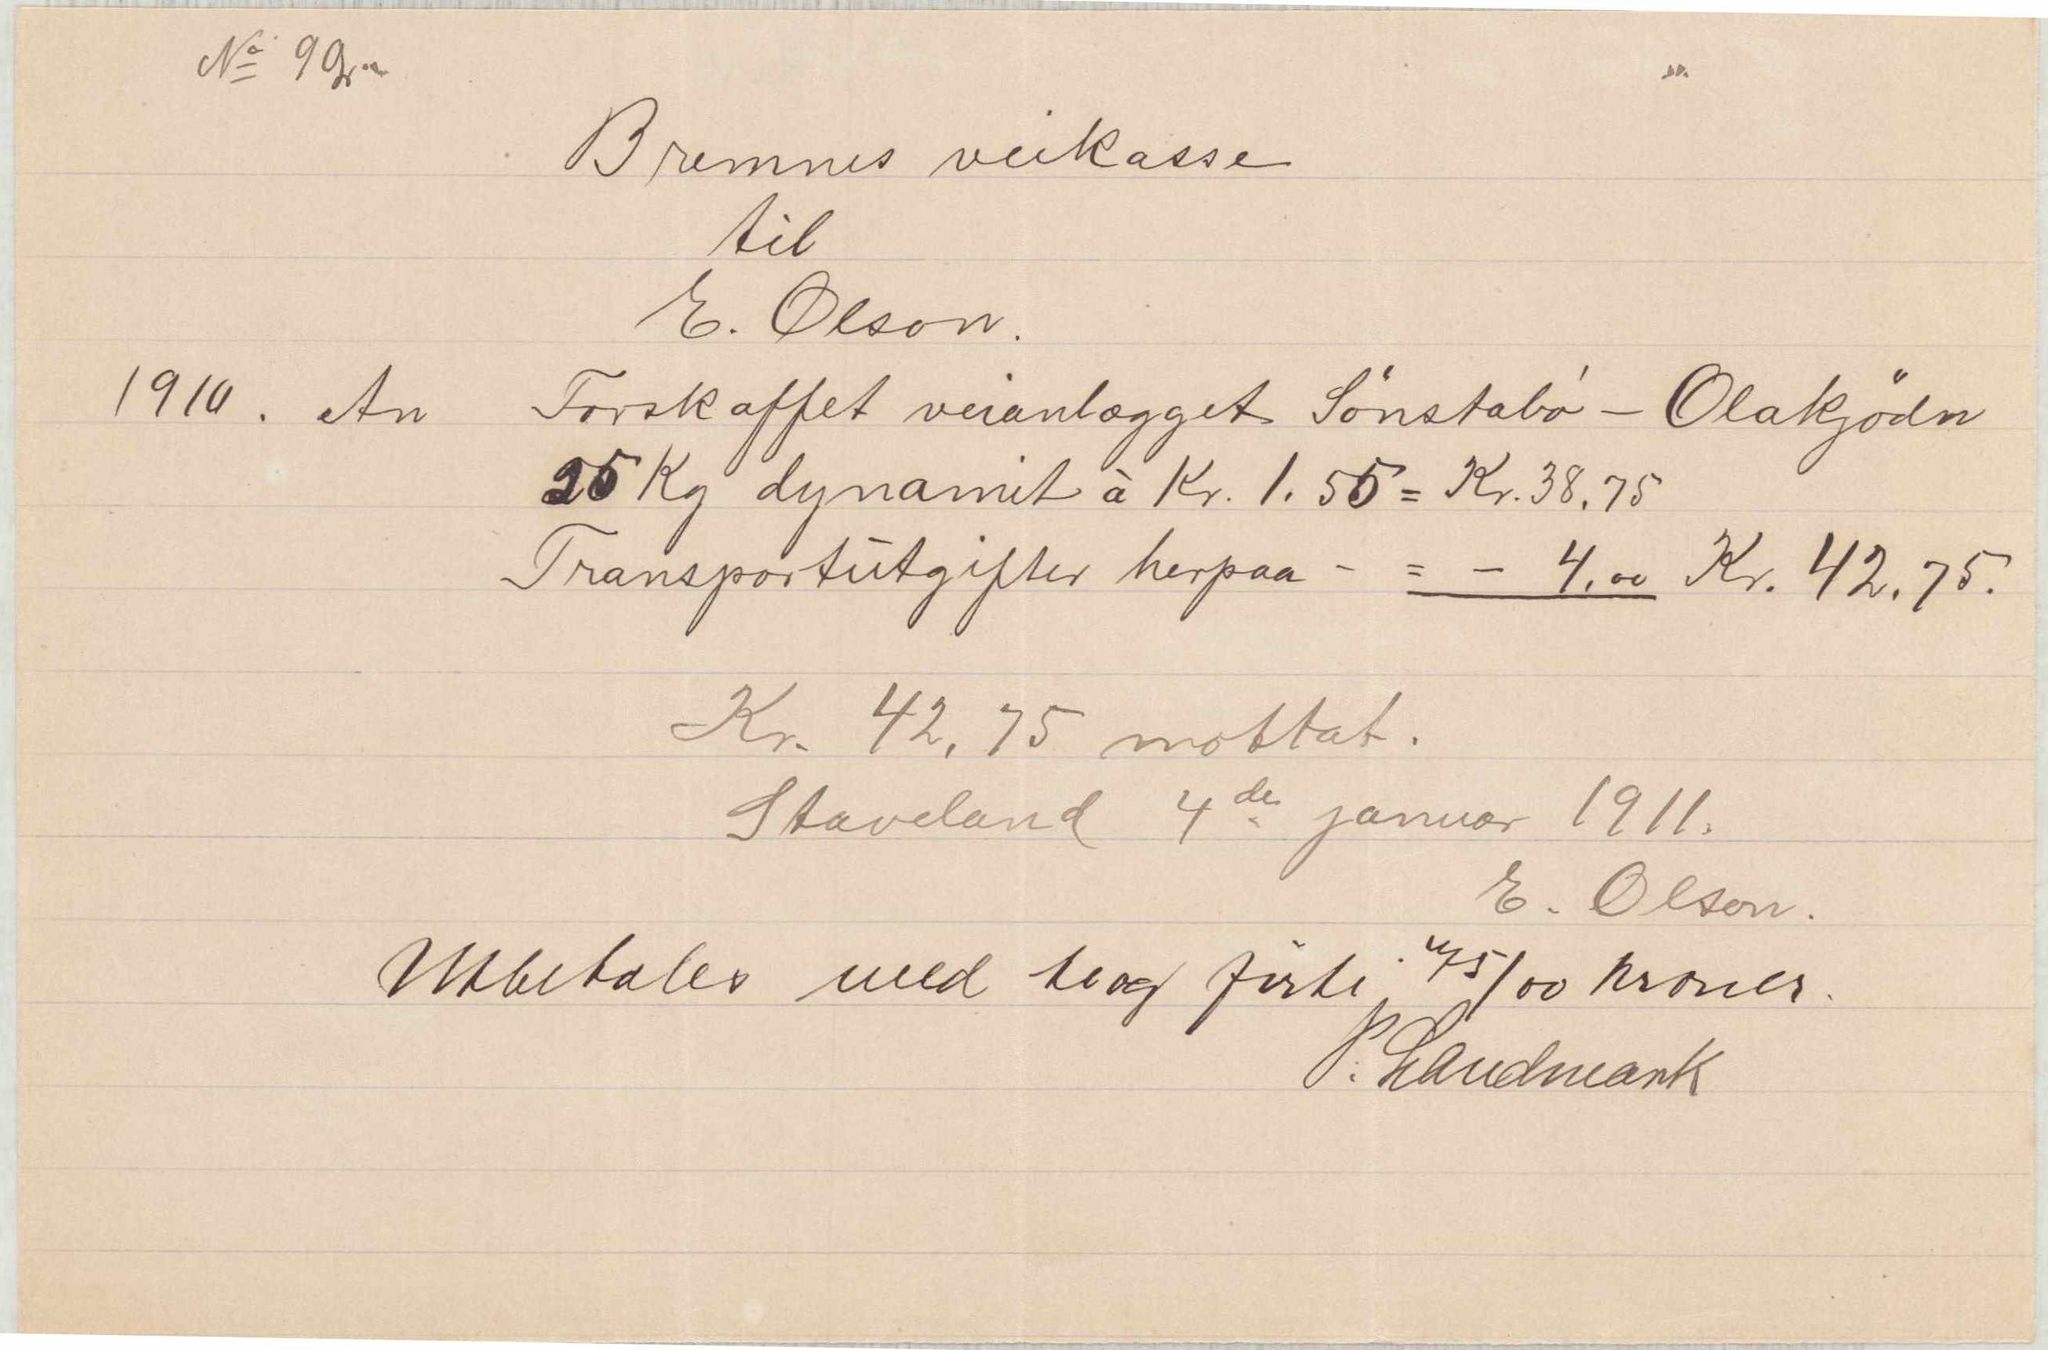 No 9
Bremnes veikasse
til
E. Olson.
1910. An Forskaffet veianlægget Sönstabö - Olakjödn
25 Kg dynamit à Kr. 1.55 = Kr. 38.75
Transportutgifter herpaa - = - 4.00 Kr. 42.75.
Kr. 42.75 mottat.
Staveland 4de januar 1911.
E. Olson.
Utbetales med to og förti 75/00 kroner.
P. Landmark